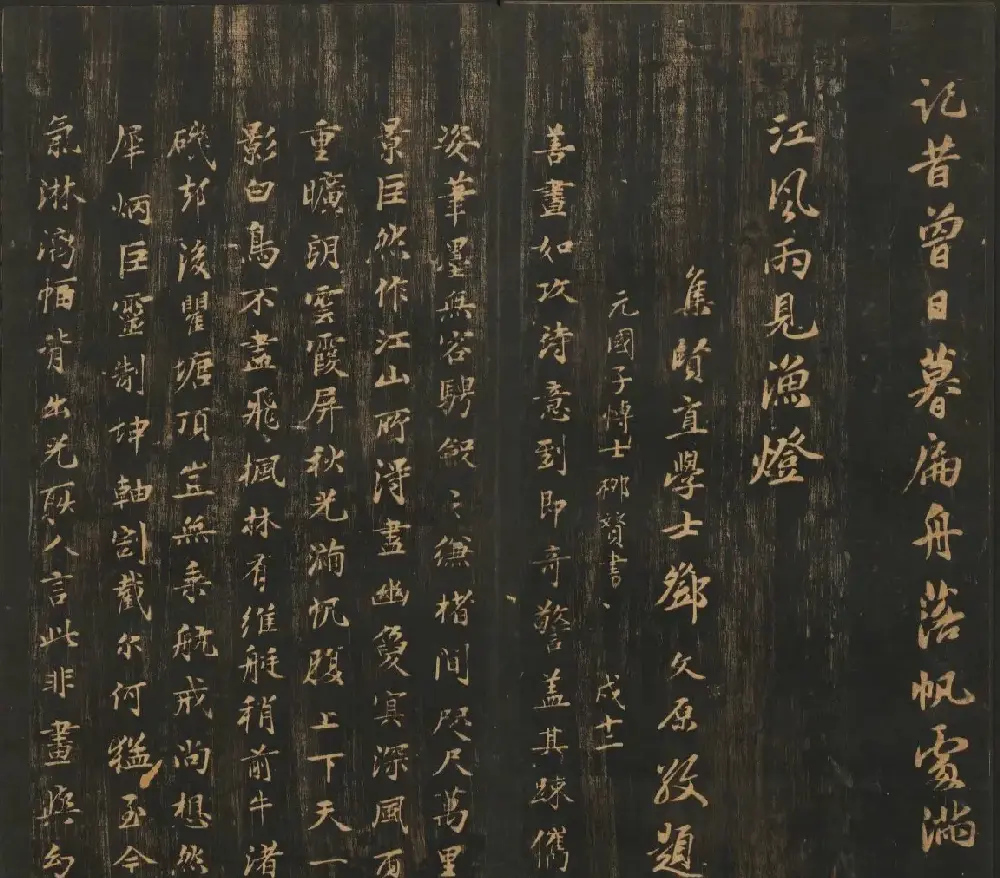 記昔曾日暮扁舟落帆處滿
江風雨見漁燈
集賢直學士鄧文原敬題
元國子博士柳贇書、戊十二
善畫如攻詩意到即奇警蓋其疎儁
姿筆墨無容騁鮮〻縑楮間咫尺萬里
景巨然作江山所得盡幽夐冥深風雨
重曠朗雲霞屏秋光滿帆腹上下天一
影白鳥不盡飛楓林有維艇稍前牛渚
磯却後瞿塘頂豈無乘航戒尚想然
犀炳巨靈制坤軸劃截尔何猛至今
氣淋漓幅背出光耿人言此非畫與幻